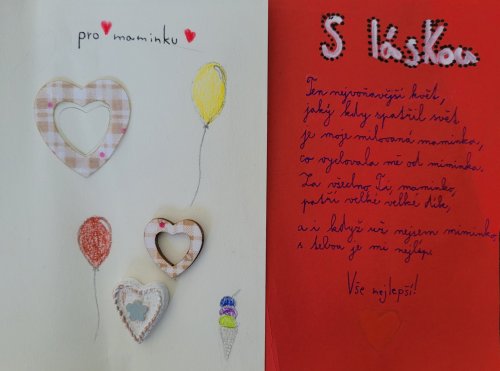 pro maminku
S láskou
Ten nejvoňavější květ,
jaký kdy spatřil svět
je moje milovaná maminka,
co vychovala mě od miminka.
Za všechno Ti, maminko,
patří velké velké díky,
a i když už nejsem miminko,
s tebou je mi nejlíp.
Vše nejlepší!